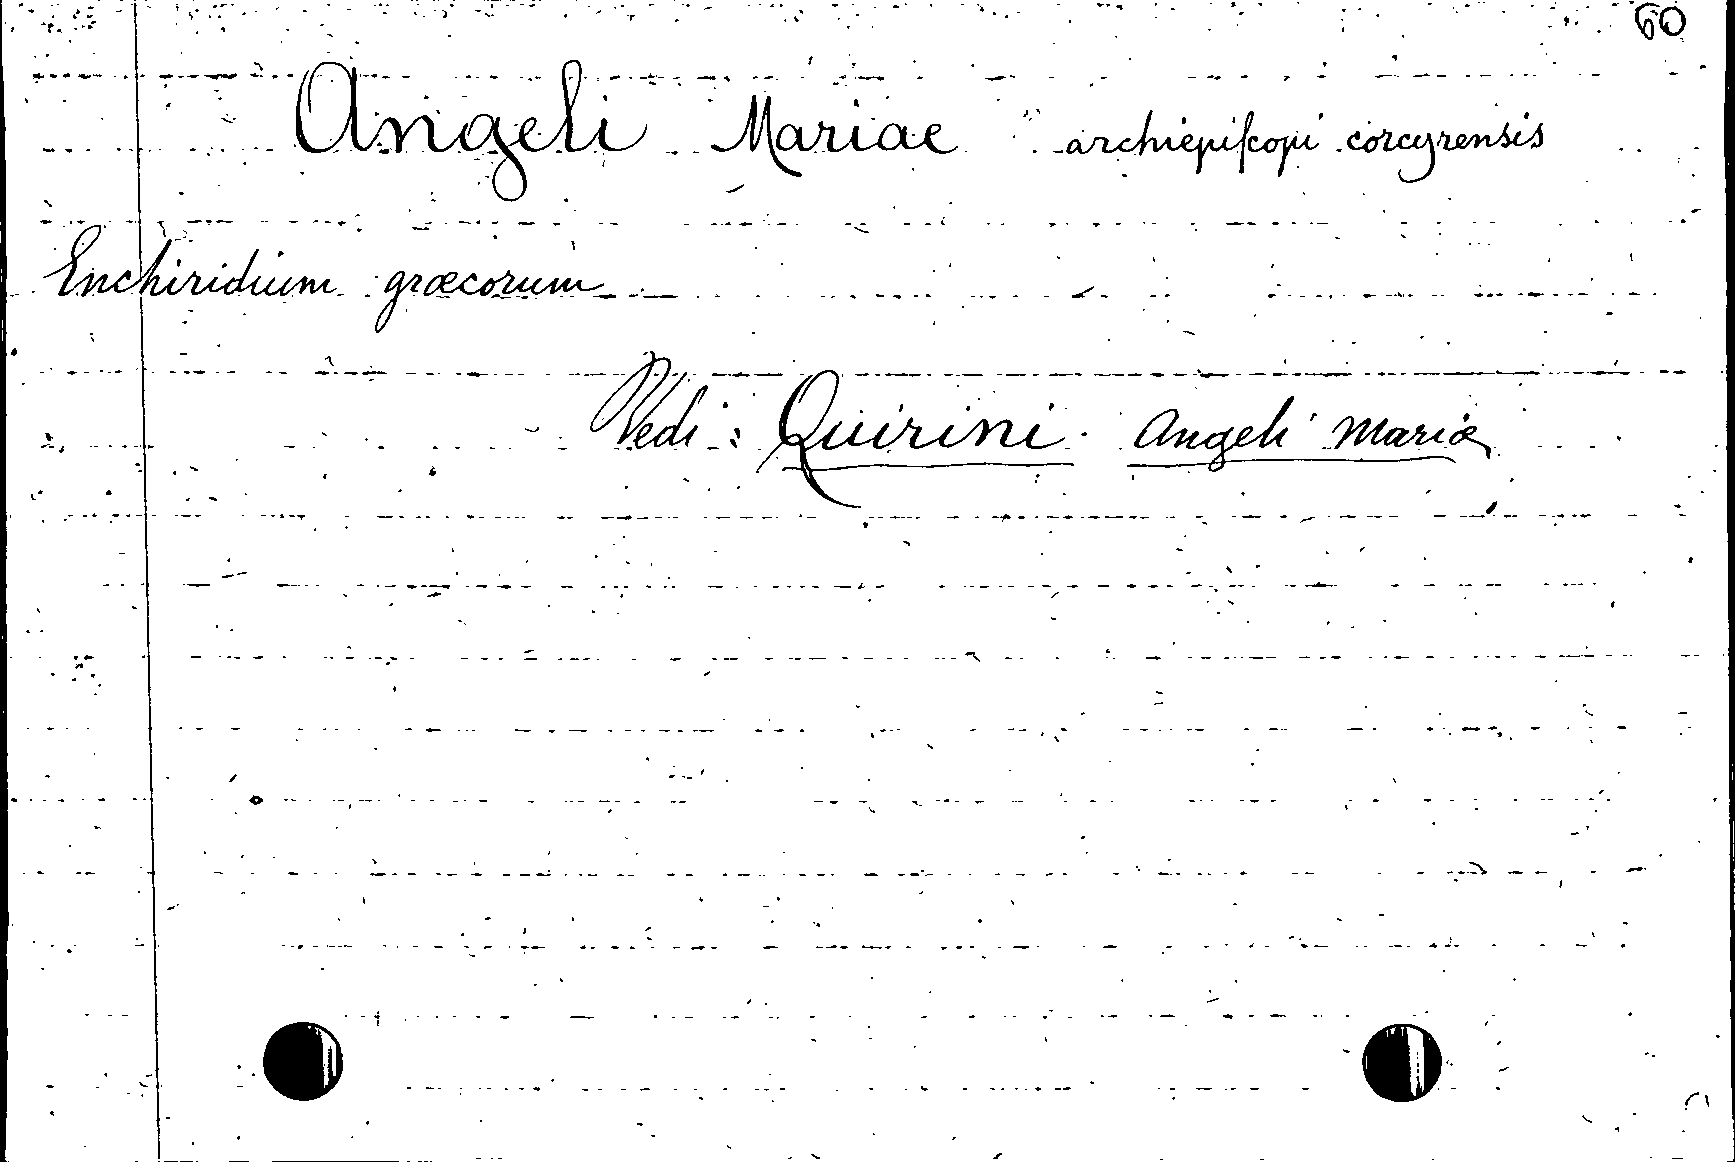 60
Angeli Mariae archiepiſcopi corcyrensis
Enchiridium græcorum
Vedi: Quirini. Angeli Mariæ